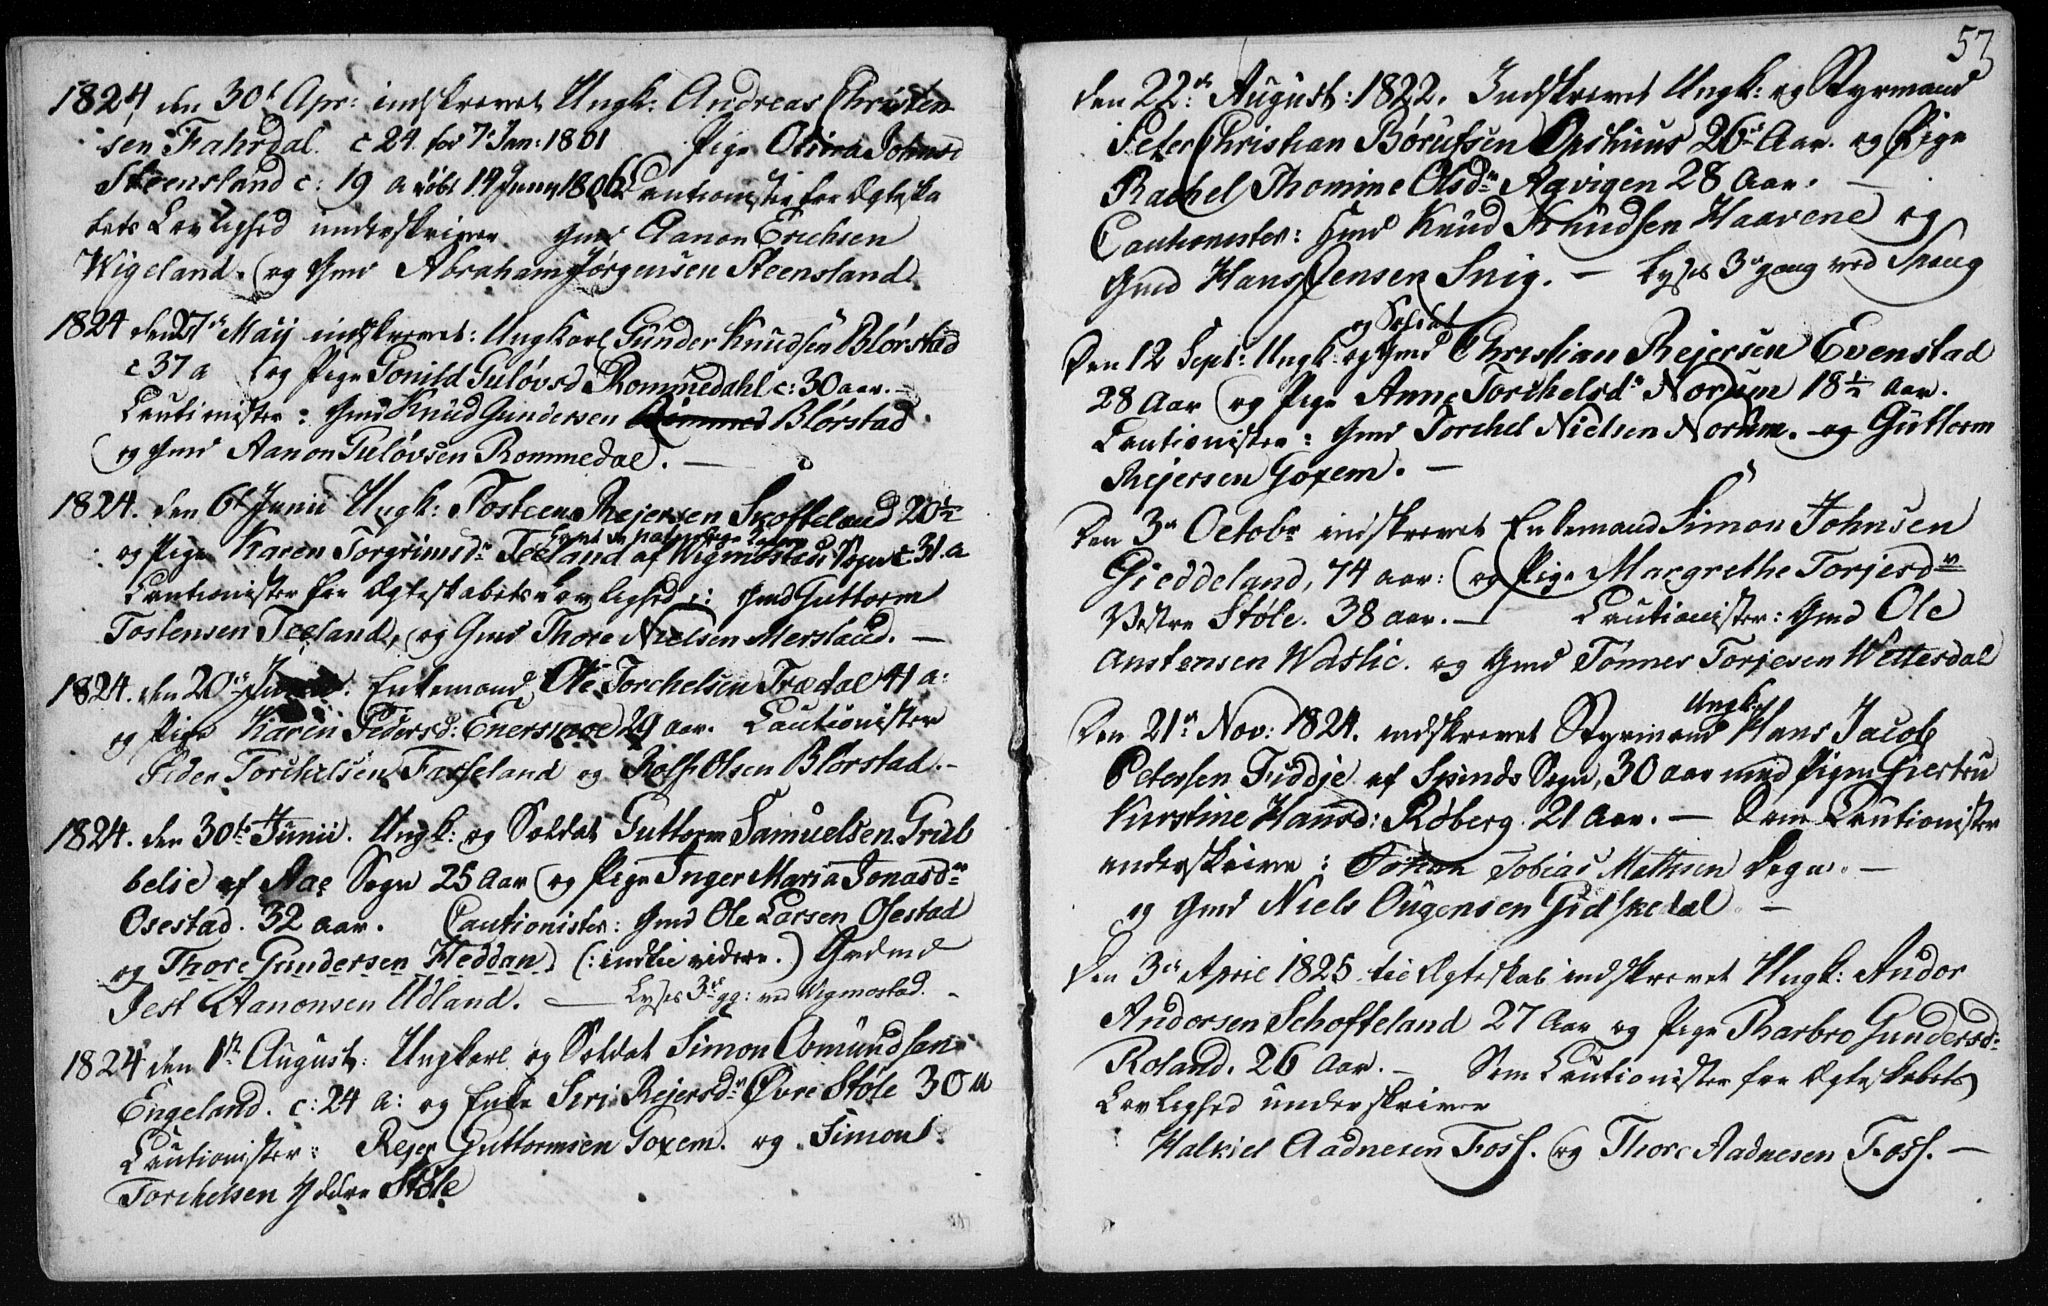 1824, den 30t Apr: indskrevet Ungk: Andreas Christen
sen Fahrdal. c 24. fød 7 Jan: 1801 Pige Olina Johnsd
Steensland c: 19 a døbt 14 Juny 1806 Cautionister for Ægteska
bets Lovlighed underskriver Gmd Aanon Erichsen
Wigeland. og Gmd Abraham Jørgensen Steensland.
1824 den 27de Maij indskrevet: Ungkarl Gunder Knudsen Blørstad
c 37 a og Pige Gonild Guløvsd Rommedahl c: 30 aar. -
Cautionister: Gmd Knud Gundersen Blørstad
og Gmd Aanon Guløvsen Rommedal. -
1824. den 6t Junii Ungk: Tosteen Rejersen Skoffeland 20½
og Pige Karen Torgrimsdr Teeland af Wigmostad Sogn c 31. a
Cautionister for Ægteskabets Lovlighed : Gmd Guttorm
Tostensen Teeland, og Gmd Thore Nielsen Merstaud. -
1824. den 20de Enkemand Ole Torchelsen Trædal 41 a:
og Pige Karen Pedersd: Eners 29 aar. Cautionister
Peder Torchelsen Fasseland og Rolf Olsen Blørstad. -
1824. den 30te Junii. Ungk: og Soldat Guttorm Samuelsen Grib
belie af Aae Sogn 25 Aar og Pige Inger Maria Jonasdr
Osestad. 32 aar. Cautionister: Gmd Ole Larsen Osestad
og Thore Gundersen Heddan. (: indtil videre.) Gmd
Jest Aanonsen Udland. - Lyses 3de gg: ved Wigmostad. -
1824 den 1ste August: Ungkarl og Soldat Simon Osmundsen
Engeland. c: 24 a: og Enke Siri Rejersdr Øvre Støle 30 a
Cautionister: Rejer Guttormsen Goxem. og Simon
Torchelsen Yddre Støle
57
den 22de August: 1822. Indskrevet Ungk: og Styrmand
Peter Christian Børufsen Opshuus 26 Aar. og Pige
Rachel Thomine Olsdr Agvigen 28 Aar. -
Cautionister: Gmd Knud Knudsen Haavene og
Gmd Hans Jensen Snig. - Lyses 3de gang ved Spang
og Soldat
Den 12 Sept: Ungk: og Gmd Christian Rejersen Evenstad
28 Aar og Pige Anne Torchelsdr Norum 18½ Aar.
Cautionister: Gmd Torchel Nielsen Norum. og Guttorm
Rejersen Goxem. -
Den 3de Octobr indskrevet Enkemand Simon Johnsen
Gieddeland, 74 aar: og Pige Margrethe Torjesdr
Vestre Støle. 38 aar. - Cautionister: Gmd Ole
Anstensen Waslie. og Gmd Tønnes Torjesen Wettesdal
Ungk:
Den 21de Nov: 1824. indskrevet Styrmand Hans Jacob
Petersen Fiddje af Spinds Sogn, 30 aar med Pigen Giertru
Kirstine Hansd: Røberg 21 Aar. - Som Cautionister
underskrive: Tobias Mathsen Degn. -
og Gmd Niels Ougensen Gidskedal. -
Den 3de April 1825 til Ægteskab indskrevet Ungk: Andor
Andorsen Schoffeland 27 Aar og Pige Barbro Gundersd:
Roland. 26 Aar. - Som Cautionister for Ægteskabets
Lovlighed underskriver
Halvied Aadnesen Foss. og Thore Aadnesen Foss. -